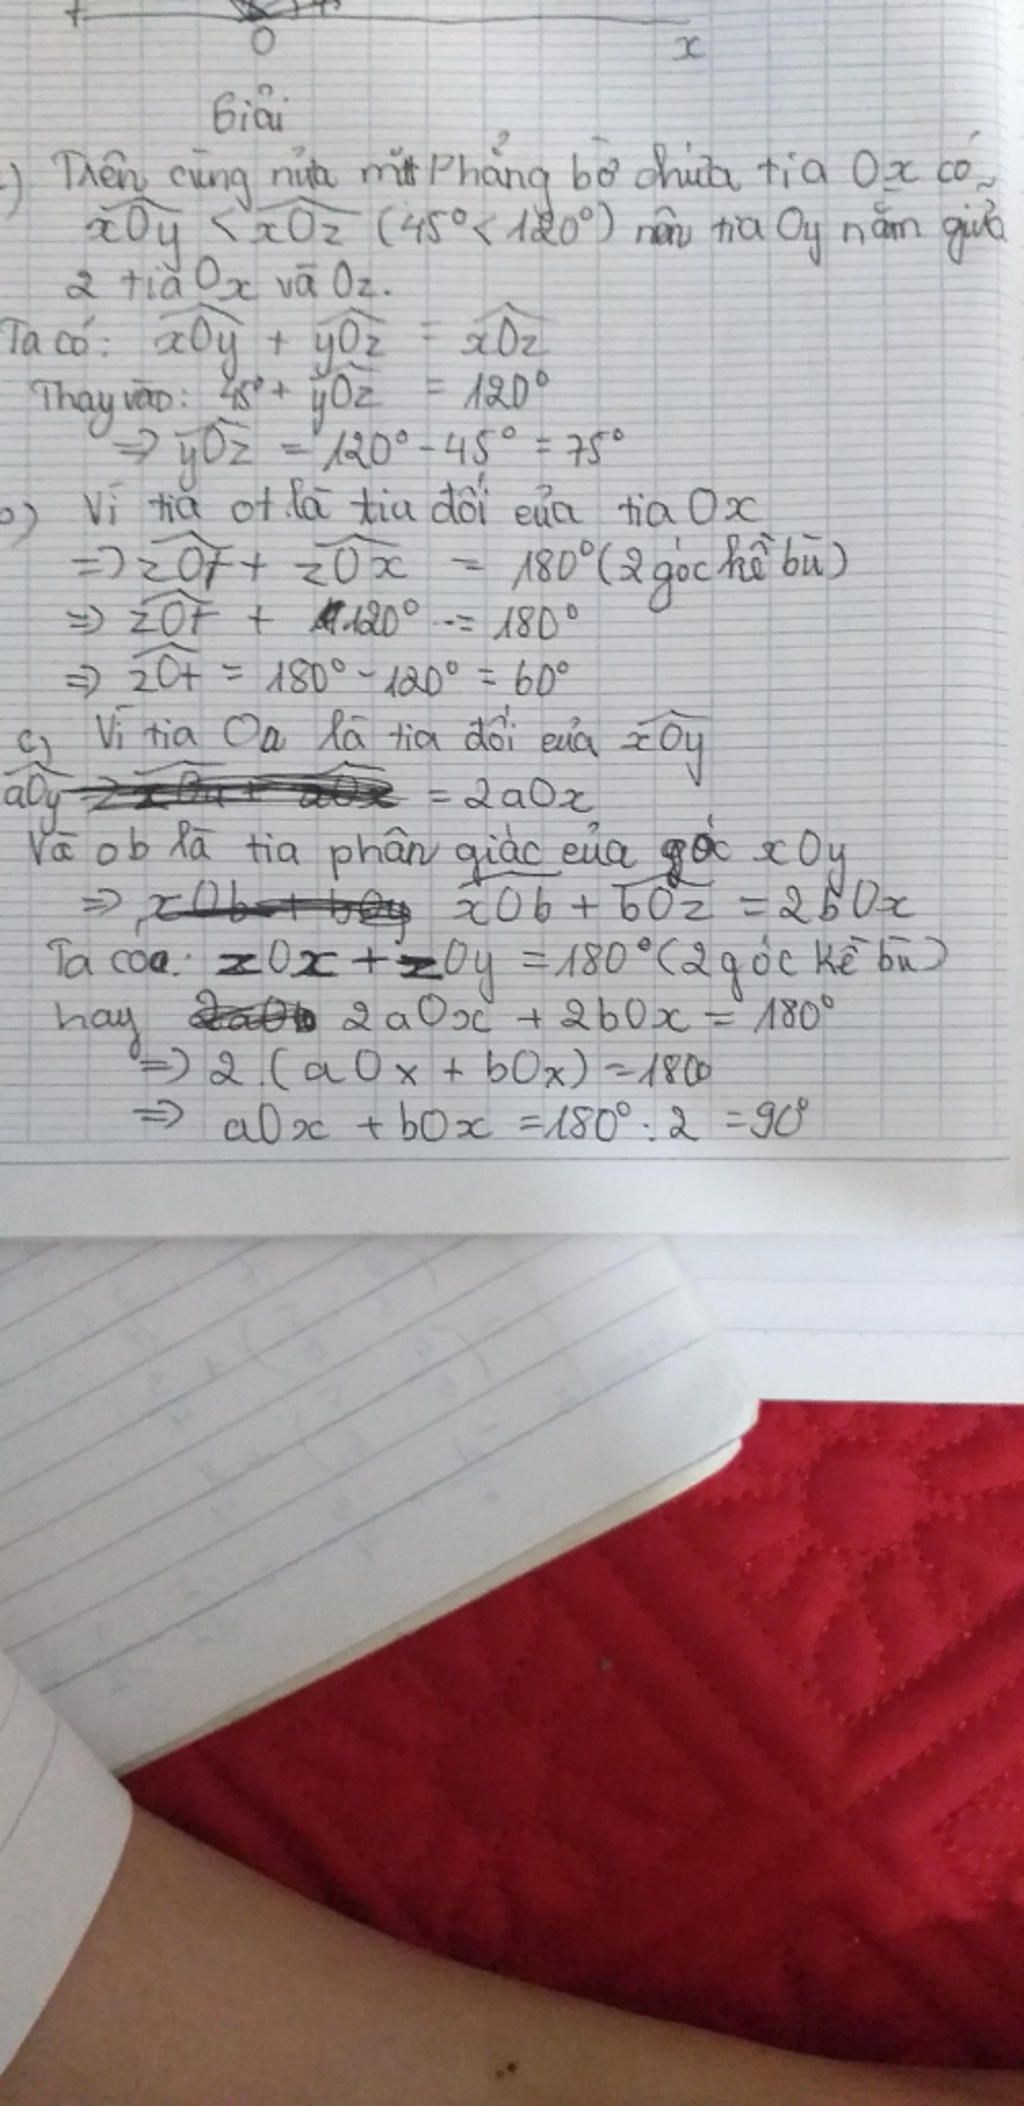 O x
Giải
Trên cùng nửa mặt phẳng bờ chứa tia Ox có
xOy < xOz (45° < 120°) nên tia Oy nằm giữa
2 tia Ox và Oz.
Ta có: xOy + yOz = xOz
Thay vào: 45° + yOz = 120°
=> yOz = 120° - 45° = 75°
b) Vì tia ot là tia đối của tia Ox
=> zOt + zOx = 180° (2 góc kề bù)
=> zOt + 120° = 180°
=> zOt = 180° - 120° = 60°
c) Vì tia Oa là tia đối của xOy
aOy = 2aOx
Và ob là tia phân giác của góc xOy
=> xOb + bOz = 2bOx
Ta có: zOx + zOy = 180° (2 góc kề bù)
hay 2aOx + 2bOx = 180°
=> 2.(aOx + bOx) = 180
=> aOx + bOx = 180° : 2 = 90°